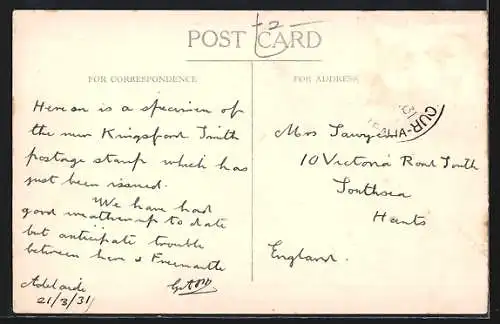 -2-
POST CARD
FOR CORRESPONDENCE
FOR ADDRESS
Hereon is a specimen of
the new Kingsford Smith
postage stamp which has
just been issued.
We have had
good weather up to date
but anticipate trouble
between here & Freemantle
Adelaide
21/3/31
Mrs
10 Victoria Road South
Southsea
Hants
England.
31